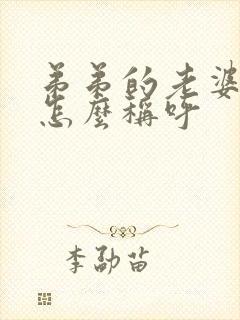 弟弟的老婆
怎麼稱呼
李勐苗